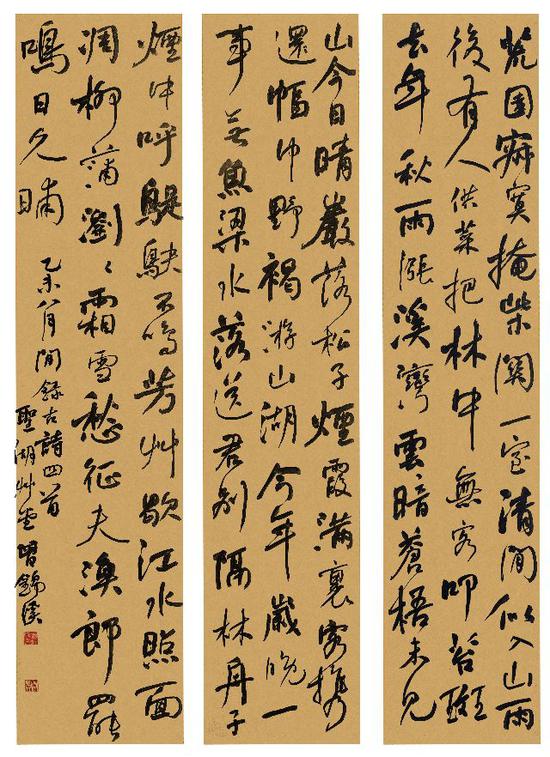 荒園寂寞掩柴關一室清閒似入山雨
後有人供菜把林中無客叩苔斑
去年秋雨漲溪灣雲暗蒼梧未見
山今日晴巖落松子煙霞滿裏客携
還幅巾野褐游山湖今年歲晚一
事無魚梁水落送君別隔林舟子
煙中呼鶗鴂不鳴芳艸歇江水照面
凋柳蒲瀏〻霜雪愁征夫漁郎罷
鳴日久晡
乙未八月閒錄古詩四首
聖湖艸堂曾錦溪